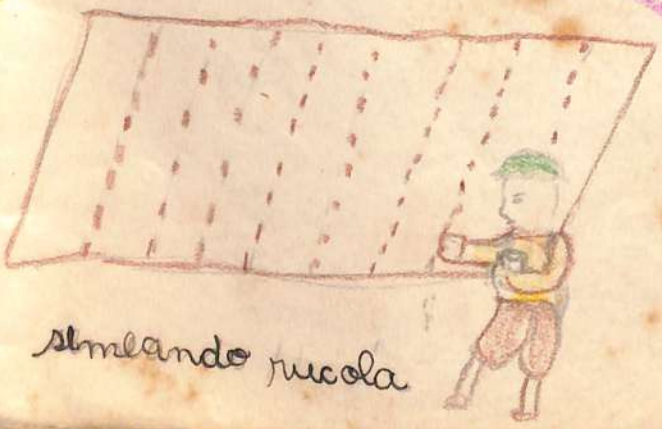 semeando rucola